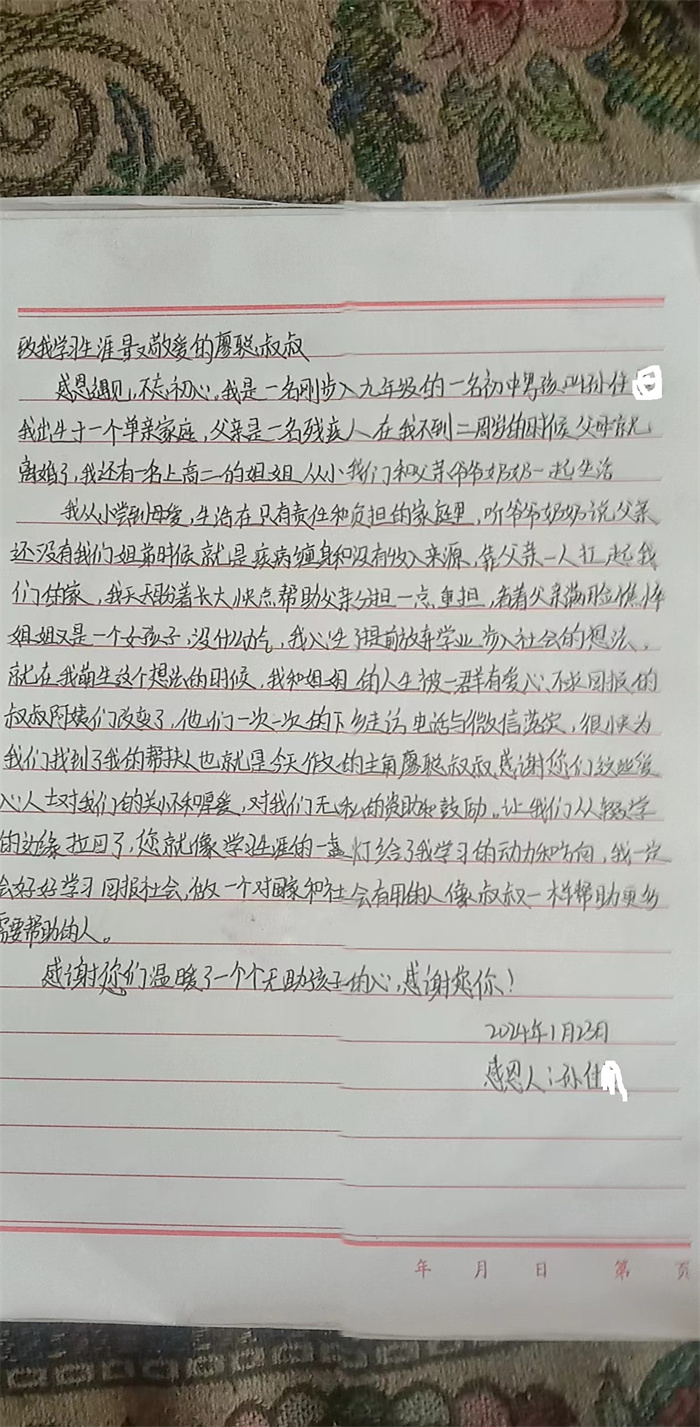 致我学习生涯最敬爱的廖聪叔叔
感恩遇见,不忘初心。我是一名刚步入九年级的一名初中男孩叫孙仕
我出生于一个单亲家庭,父亲是一名残疾人在我不到二周岁的时候父母就
离婚了,我还有一名上高二的姐姐从小我们和父亲爷爷奶奶一起生活
我从小尝到母爱,生活在只有责任和负担的家庭里,听爷爷奶奶说父亲
还没有我们姐弟时候就是疾病缠身和没有收入来源,靠父亲一人扛起我
们的家,我天天盼着长大快点帮助父亲分担一点重担,看着父亲满脸憔悴
姐姐又是一个女孩子,没什么力气,我心生了提前放弃学业步入社会的想法,
就在我萌生这个想法的时候,我和姐姐的人生被一群有爱心不求回报的
叔叔阿姨们改变了,他们一次一次的下乡走访,电话与微信落实,很快为
我们找到了我的帮扶人也就是今天作文的主角廖聪叔叔,感谢您们这些爱
心人士对我们的关怀和厚爱,对我们无私的资助和鼓励。让我们从辍学
的边缘拉回了,您就像学习生涯的一盏灯给了我学习的动力和方向,我一定
会好好学习回报社会,做一个对国家和社会有用的人像叔叔一样帮助更多
需要帮助的人。
感谢您们温暖了一个个无助孩子的心,感谢您你!
2024年1月23日
感恩人:孙仕
年 月 日 第 页